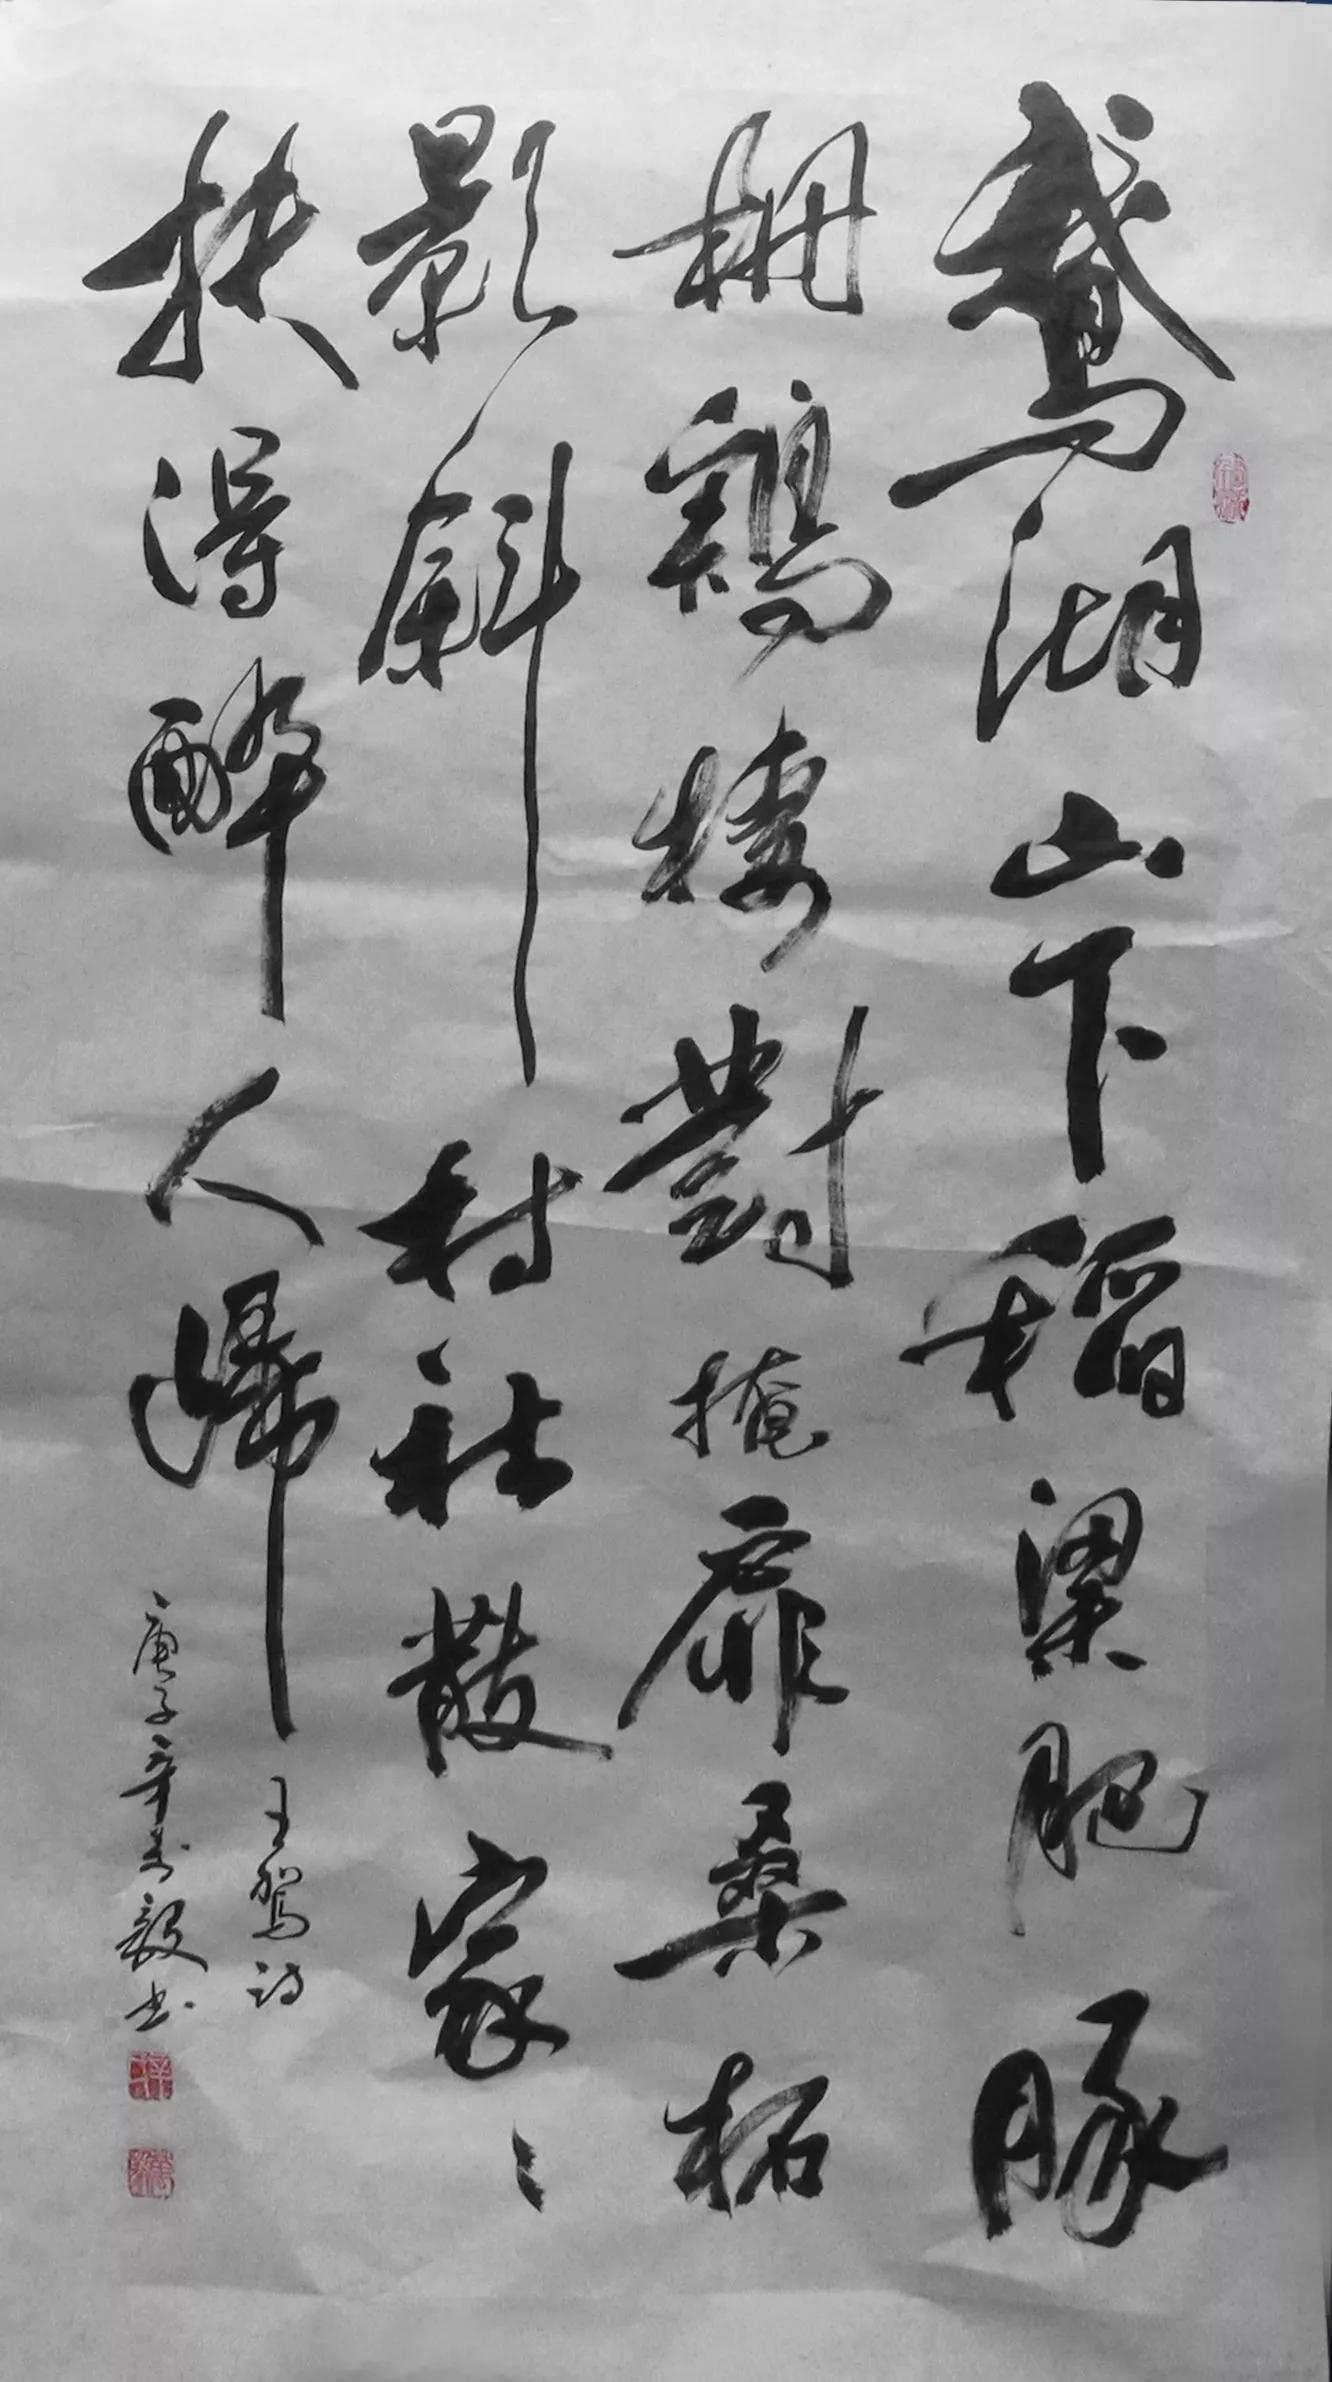 鵝湖山下稻粱肥豚
柵鷄棲對掩扉桑柘
影斜村社散家〻
扶得醉人歸
王駕詩
庚子毅书